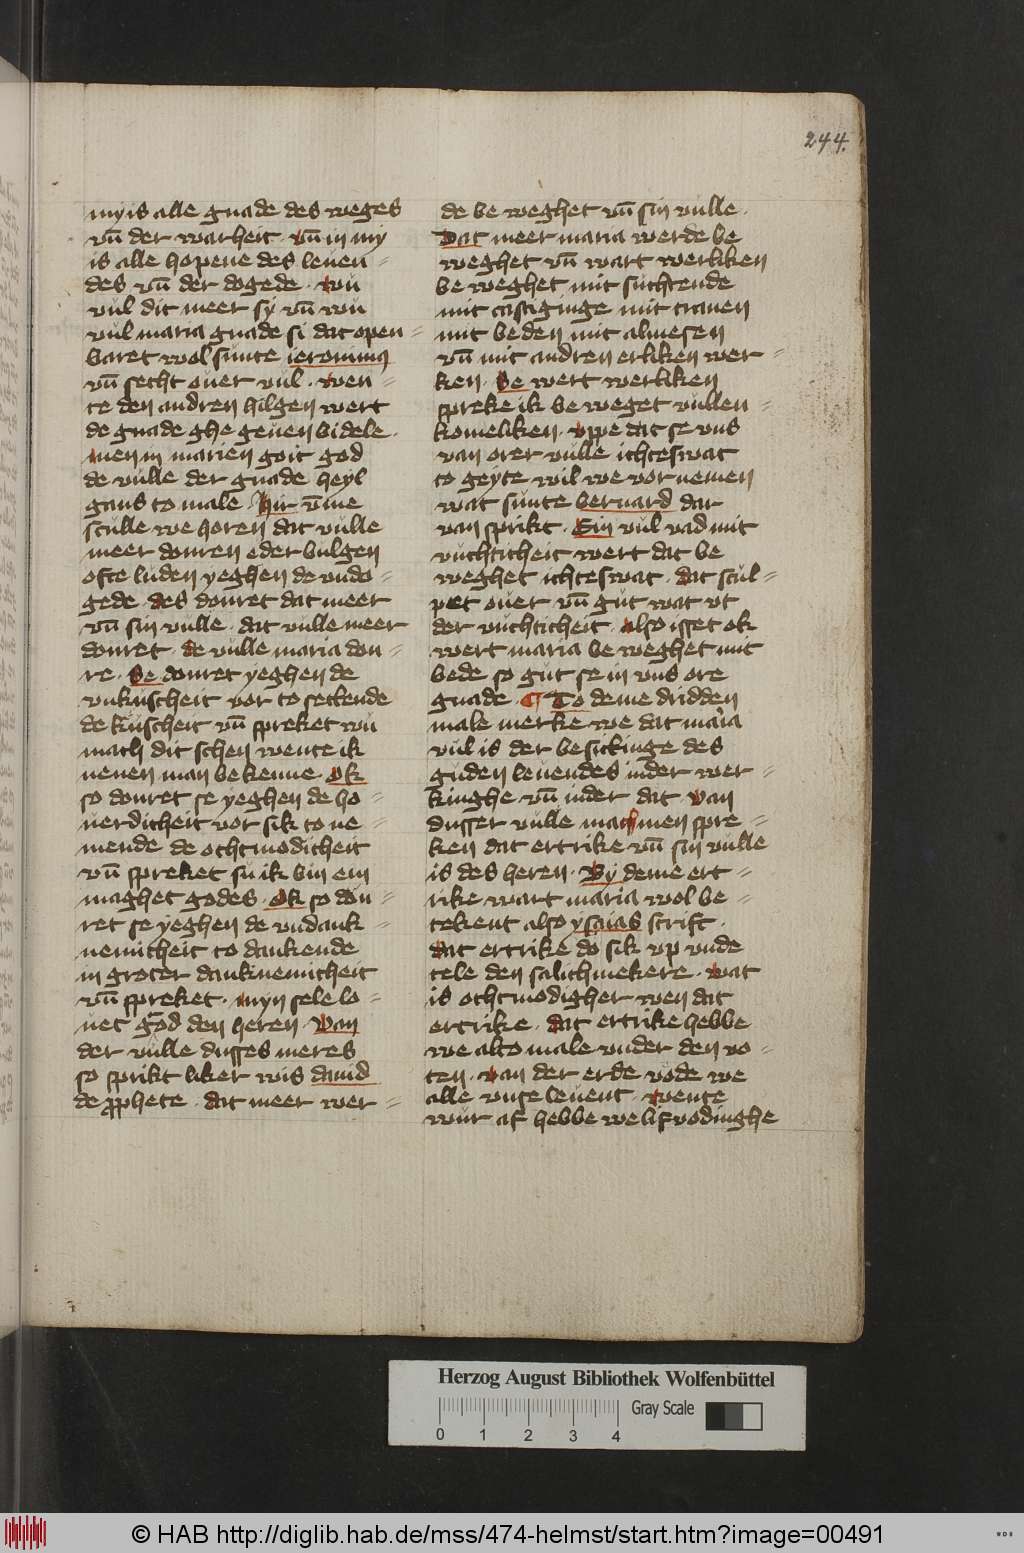 244.
my is alle gnade des weges
vn̄ der warheit · vn̄ in my
is alle hopene des leuen⸗
des vn̄ der dogede · wu
vul dit meer sy vn̄ wu
vul maria gnade si dat open⸗
baret wol sunte ieronimꝯ
vn̄ secht ouer vul · wen⸗
te den andren hilgen wert
de gnade ghe geuen bi dele ·
men in marien goit god
de vulle der gnade heyl
gans to male · hir v̄me
sculle we horen dat vulle
meer donren eder bulgen
ofte luden yeghen de vndo⸗
gede des donret dat meer
vn̄ sin vulle · dat vulle meer
donret · de vulle maria don⸗
re · Se donret yeghen de
vnkuscheit vor to settende
de kuscheit vn̄ spreket wu
mach dit schen wente ik
nenen man bekenne · Ok
so donret se yeghen de ho⸗
uerdicheit vor sik to ne⸗
mende de othmodicheit
vn̄ spreket su ik bin ein
maghet godes · Ok so don⸗
ret se yeghen de vndank⸗
nemicheit to dankende
in groter danknemicheit
vn̄ spreket · myn sele lo⸗
uet god den heren · Van
der vulle dusses meres
so sprikt liker wis dauid
de ꝓphete · dat meer wer⸗
de be weghet vn̄ sin vulle ·
Dat meer maria werde be
weghet vn̄ wart werliken
be weghet mit suchtende
mit castiginge mit tranen
mit beden mit almesen
vn̄ mit andren erliken wer⸗
ken · Se wert werliken
spreke ik be weget vullen⸗
komeliken · vppe dat se vns
van orer vulle ichteswat
to geyte wil we vornemen
wat sunte bernard dar
van sprikt · Ein vul vad mit
vuchticheit wert dat be
weghet ichteswat · dat scul⸗
pet ouer vn̄ gut wat vt
der vuchticheit · also isset ok
wert maria be weghet mit
bede so gut se in vns ore
gnade · ¶ To deme dridden
male merke we dat maria
vul is der besittinge des
guden leuendes in der wer⸗
kinghe vn̄ in der dat · van
dusser vulle mach men spre⸗
ken dat ertrike vn̄ sin vulle
is des heren · By deme ert⸗
rike wart maria wol be⸗
tekent also ysaias scrift ·
dat ertrike do sik vp vnde
tele den salichmekere · wat
is othmodigher wen dat
ertrike · dat ertrike hebbe
we alto male vnder den vo⸗
ten · van der erde vode we
alle vnse leuent · wente
wur af hebbe we lifvodinghe
Herzog August Bibliothek Wolfenbüttel
Gray Scale
0 1 2 3 4
© HAB http://diglib.hab.de/mss/474-helmst/start.htm?image=00491